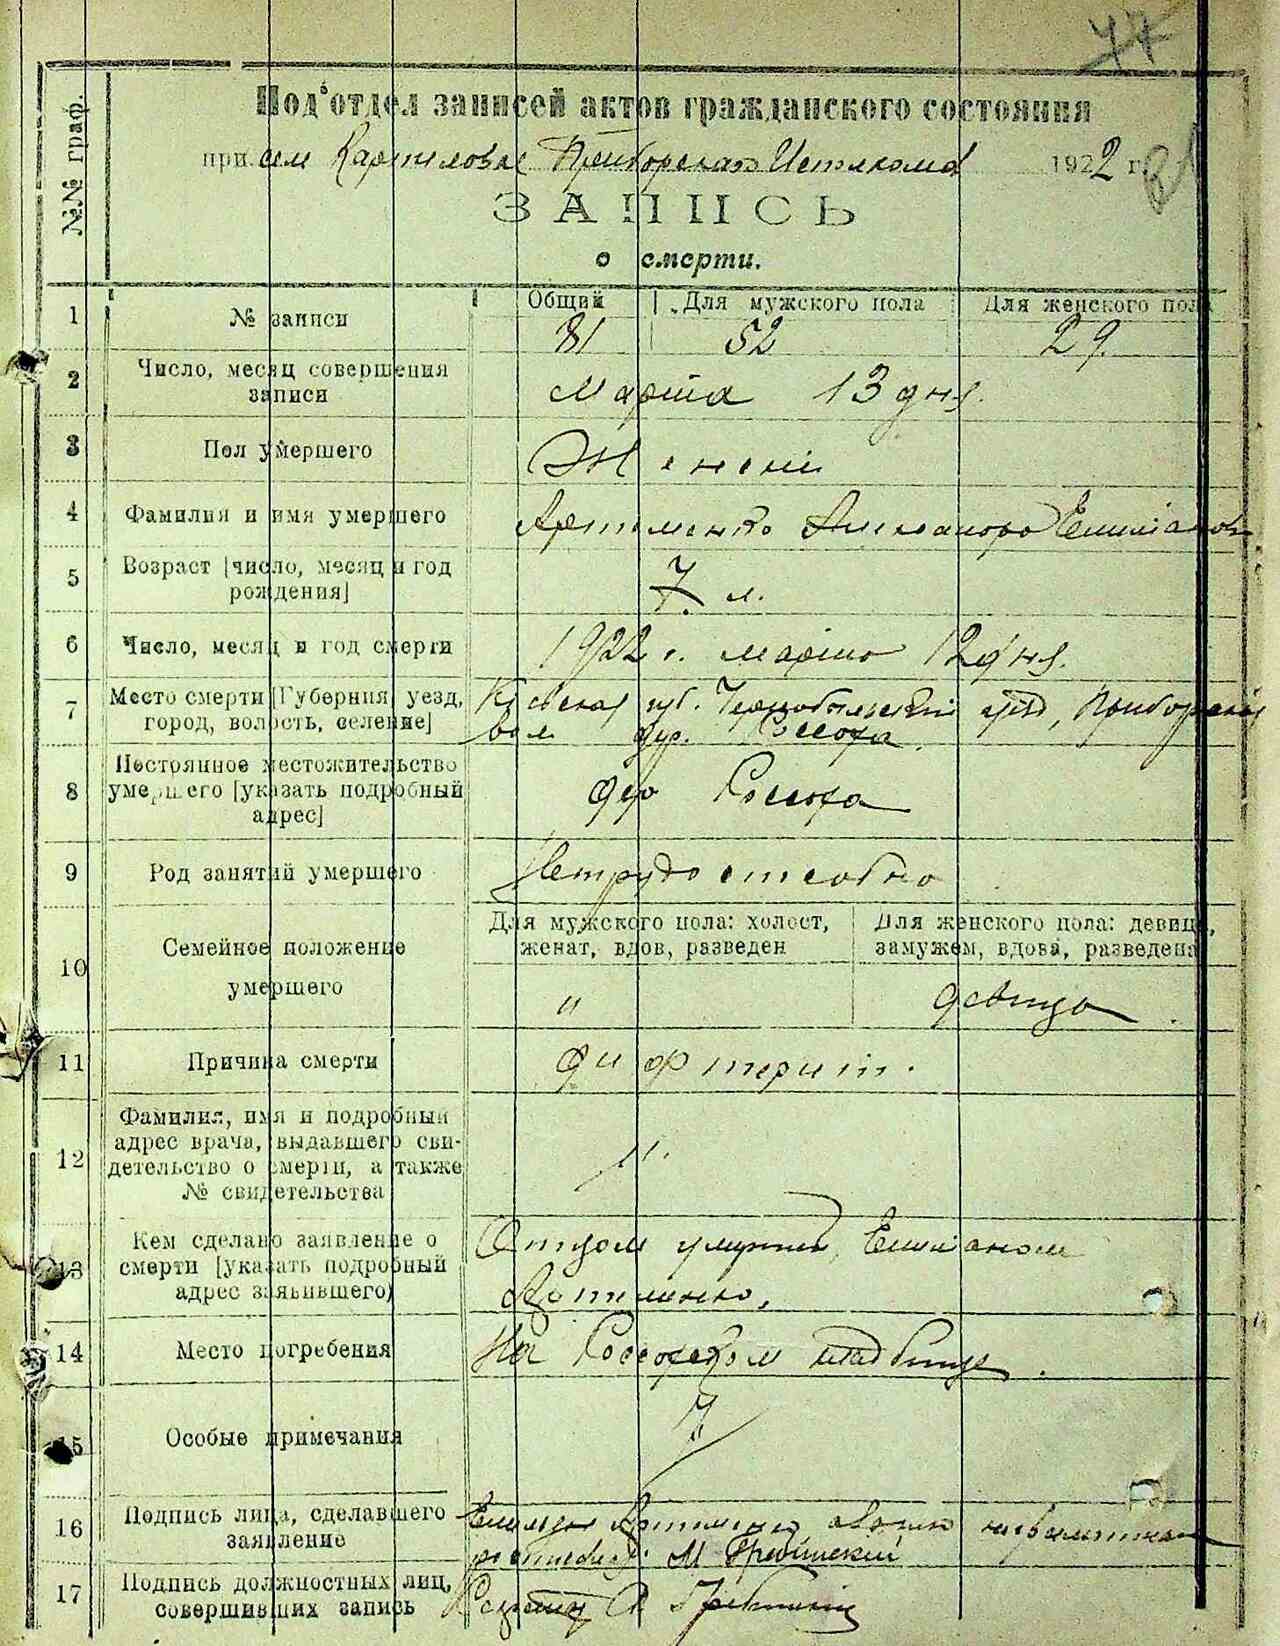 77
№№ граф.
Под'отдел записей актов гражданского состояния
при сем Приборском 1922 г.
ЗАПИСЬ
о смерти.
1 № записи Общий Для мужского пола Для женского пола
81 52 29.
2 Число, месяц совершения записи
Марта 13 дня.
3 Пол умершего
Женский
4 Фамилия и имя умершего
Артименко Александра
5 Возраст [число, месяц и год рождения]
7 л.
6 Число, месяц и год смерти
1922 г. марта 12 дня.
7 Место смерти [Губерния, уезд, город, волость, селение]
Киевская губ. Чернобыльский уезд, Приборская
вол. дер. Россоха.
8 Постоянное местожительство умершего [указать подробный адрес]
дер Россоха
9 Род занятий умершего
Нетрудоспособна
10 Семейное положение умершего
Для мужского пола: холост, женат, вдов, разведен
Для женского пола: девица, замужем, вдова, разведена
" девица
11 Причина смерти
дифтерит.
12 Фамилия, имя и подробный адрес врача, выдавшего свидетельство о смерти, а также № свидетельства
".
13 Кем сделано заявление о смерти [указать подробный адрес заявившего)
Отцом умершей,
Артименко,
14 Место погребения
На Россохском кладбище.
15 Особые примечания
16 Подпись лица, сделавшего заявление
Артименко
М
17 Подпись должностных лиц, совершивших запись